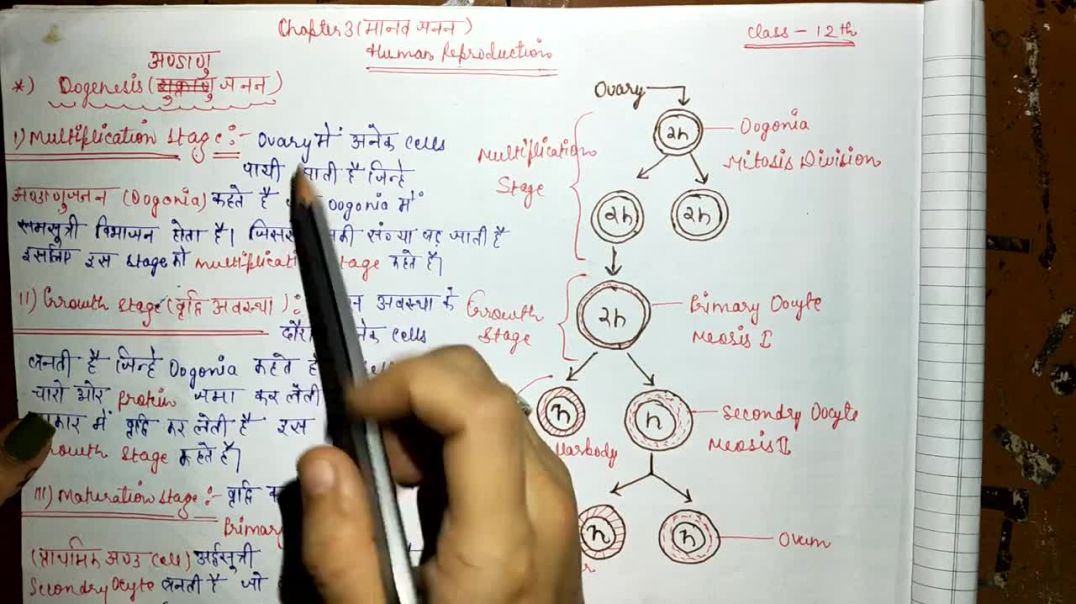 Chapter 3 (मानव जनन)
Human Reproduction
Class - 12th
अण्डाणु
*) Oogenesis ( जनन)
I) Multiplication Stage :- Ovary में अनेक cells
पायी जाती है जिन्हे
अण्डाणुजनन (Oogonia) कहते है Oogonia में
समसूत्री विभाजन होता है। जिससे संख्या बढ़ जाती है
इसलिए इस stage को multiplication stage कहते है।
II) Growth Stage (वृद्धि अवस्था) : अवस्था के
दौरान cells
बनती है जिन्हे Oogonia कहते है
चारो ओर protein जमा कर लेती
में वृद्धि कर लेती है इस
Growth Stage कहते है।
III) Maturation Stage :- वृद्धि
Primary
(प्राथमिक अण्ड Cell) अर्द्धसूत्री
Secondry Oocyte बनती है जो
Ovary
2n
Oogonia
Mitosis Division
Multiplication
Stage
2n
2n
Growth
Stage
2n
Primary Oocyte
Meosis I
n
n
Secondry Oocyte
Meosis II
n
n
Ovum